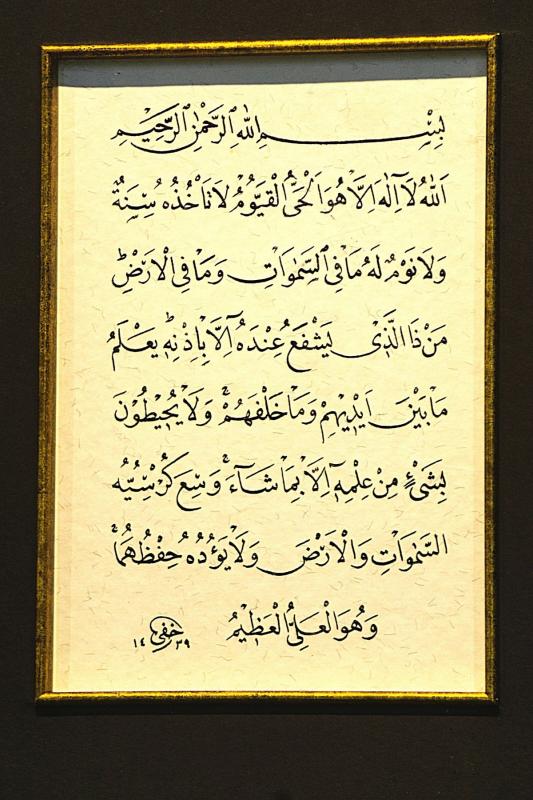 بِسْمِ اللهِ الرَّحْمٰنِ الرَّحِيْمِ
اَللهُ لَآ اِلٰهَ اِلَّا هُوَ اَلْحَىُّ الْقَيُّوْمُ لَا تَأْخُذُهُ سِنَةٌ
وَلَا نَوْمٌ لَهُ مَا فِى السَّمٰوَاتِ وَمَا فِى الْاَرْضِ
مَنْ ذَا الَّذِى يَشْفَعُ عِنْدَهُ اِلَّا بِاِذْنِهٖ يَعْلَمُ
مَا بَيْنَ اَيْدِيْهِمْ وَمَا خَلْفَهُمْ وَلَا يُحِيْطُوْنَ
بِشَىْءٍ مِنْ عِلْمِهٖٓ اِلَّا بِمَا شَآءَ وَسِعَ كُرْسِيُّهُ
السَّمٰوَاتِ وَالْاَرْضَ وَلَا يَؤُدُهُ حِفْظُهُمَا
وَهُوَ الْعَلِىُّ الْعَظِيْمُ
حقي ١٤٣٩